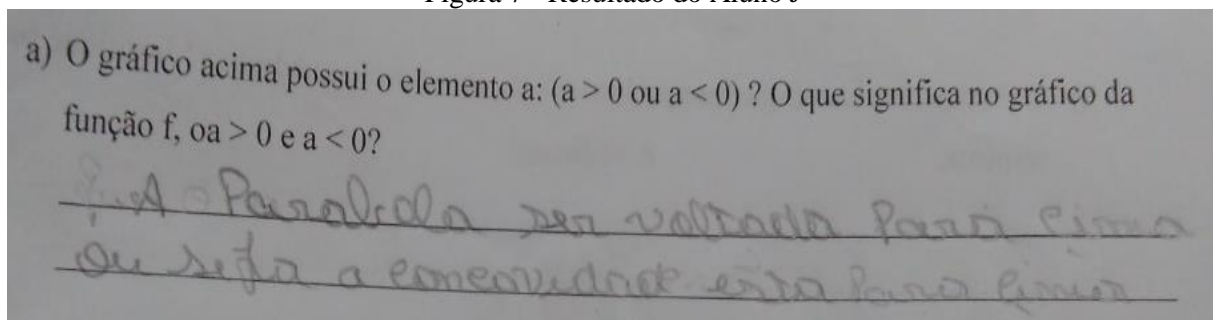 Figura 7 - Resultado do Aluno J
a) O gráfico acima possui o elemento a: (a > 0 ou a < 0) ? O que significa no gráfico da
função f, oa > 0 e a < 0?
A Parabola ser voltada Para cima
ou seja a concavidade esta Para cima